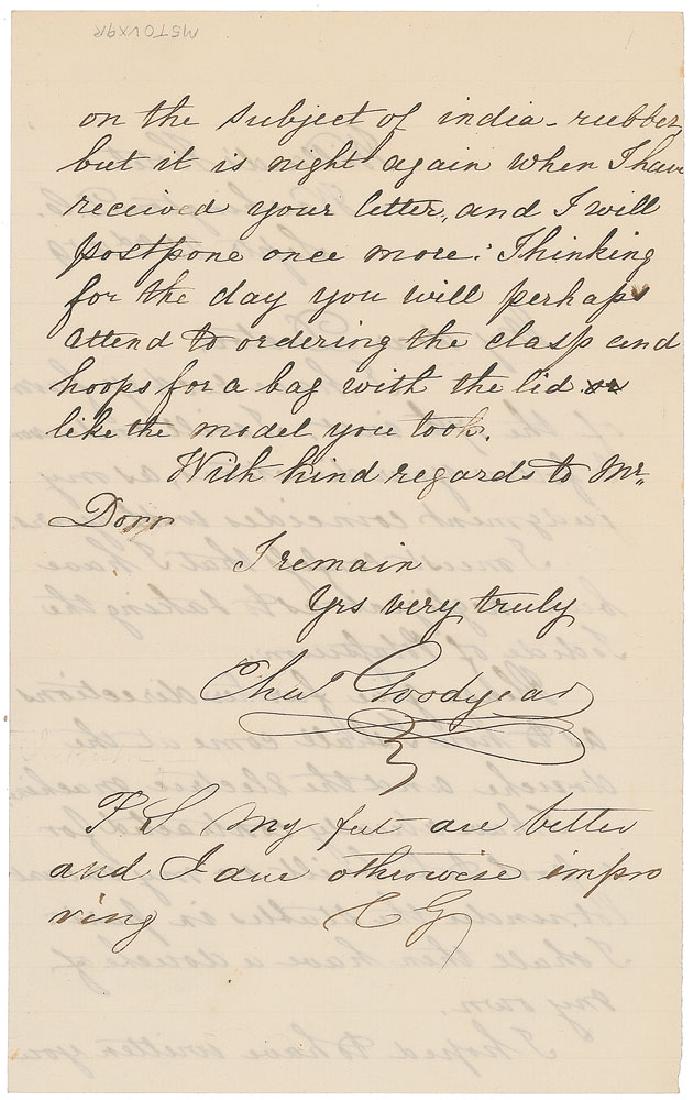 on the subject of india-rubber
but it is night again when I have
received your letter, and I will
postpone once more. Thinking
for the day you will perhaps
attend to ordering the clasp and
hoops for a bag with the lid
like the model you took.
With kind regards to Mr.
Dorr
I remain
Yrs very truly
Chas Goodyear
P S My feet are better
and I am otherwise impro
ving C G